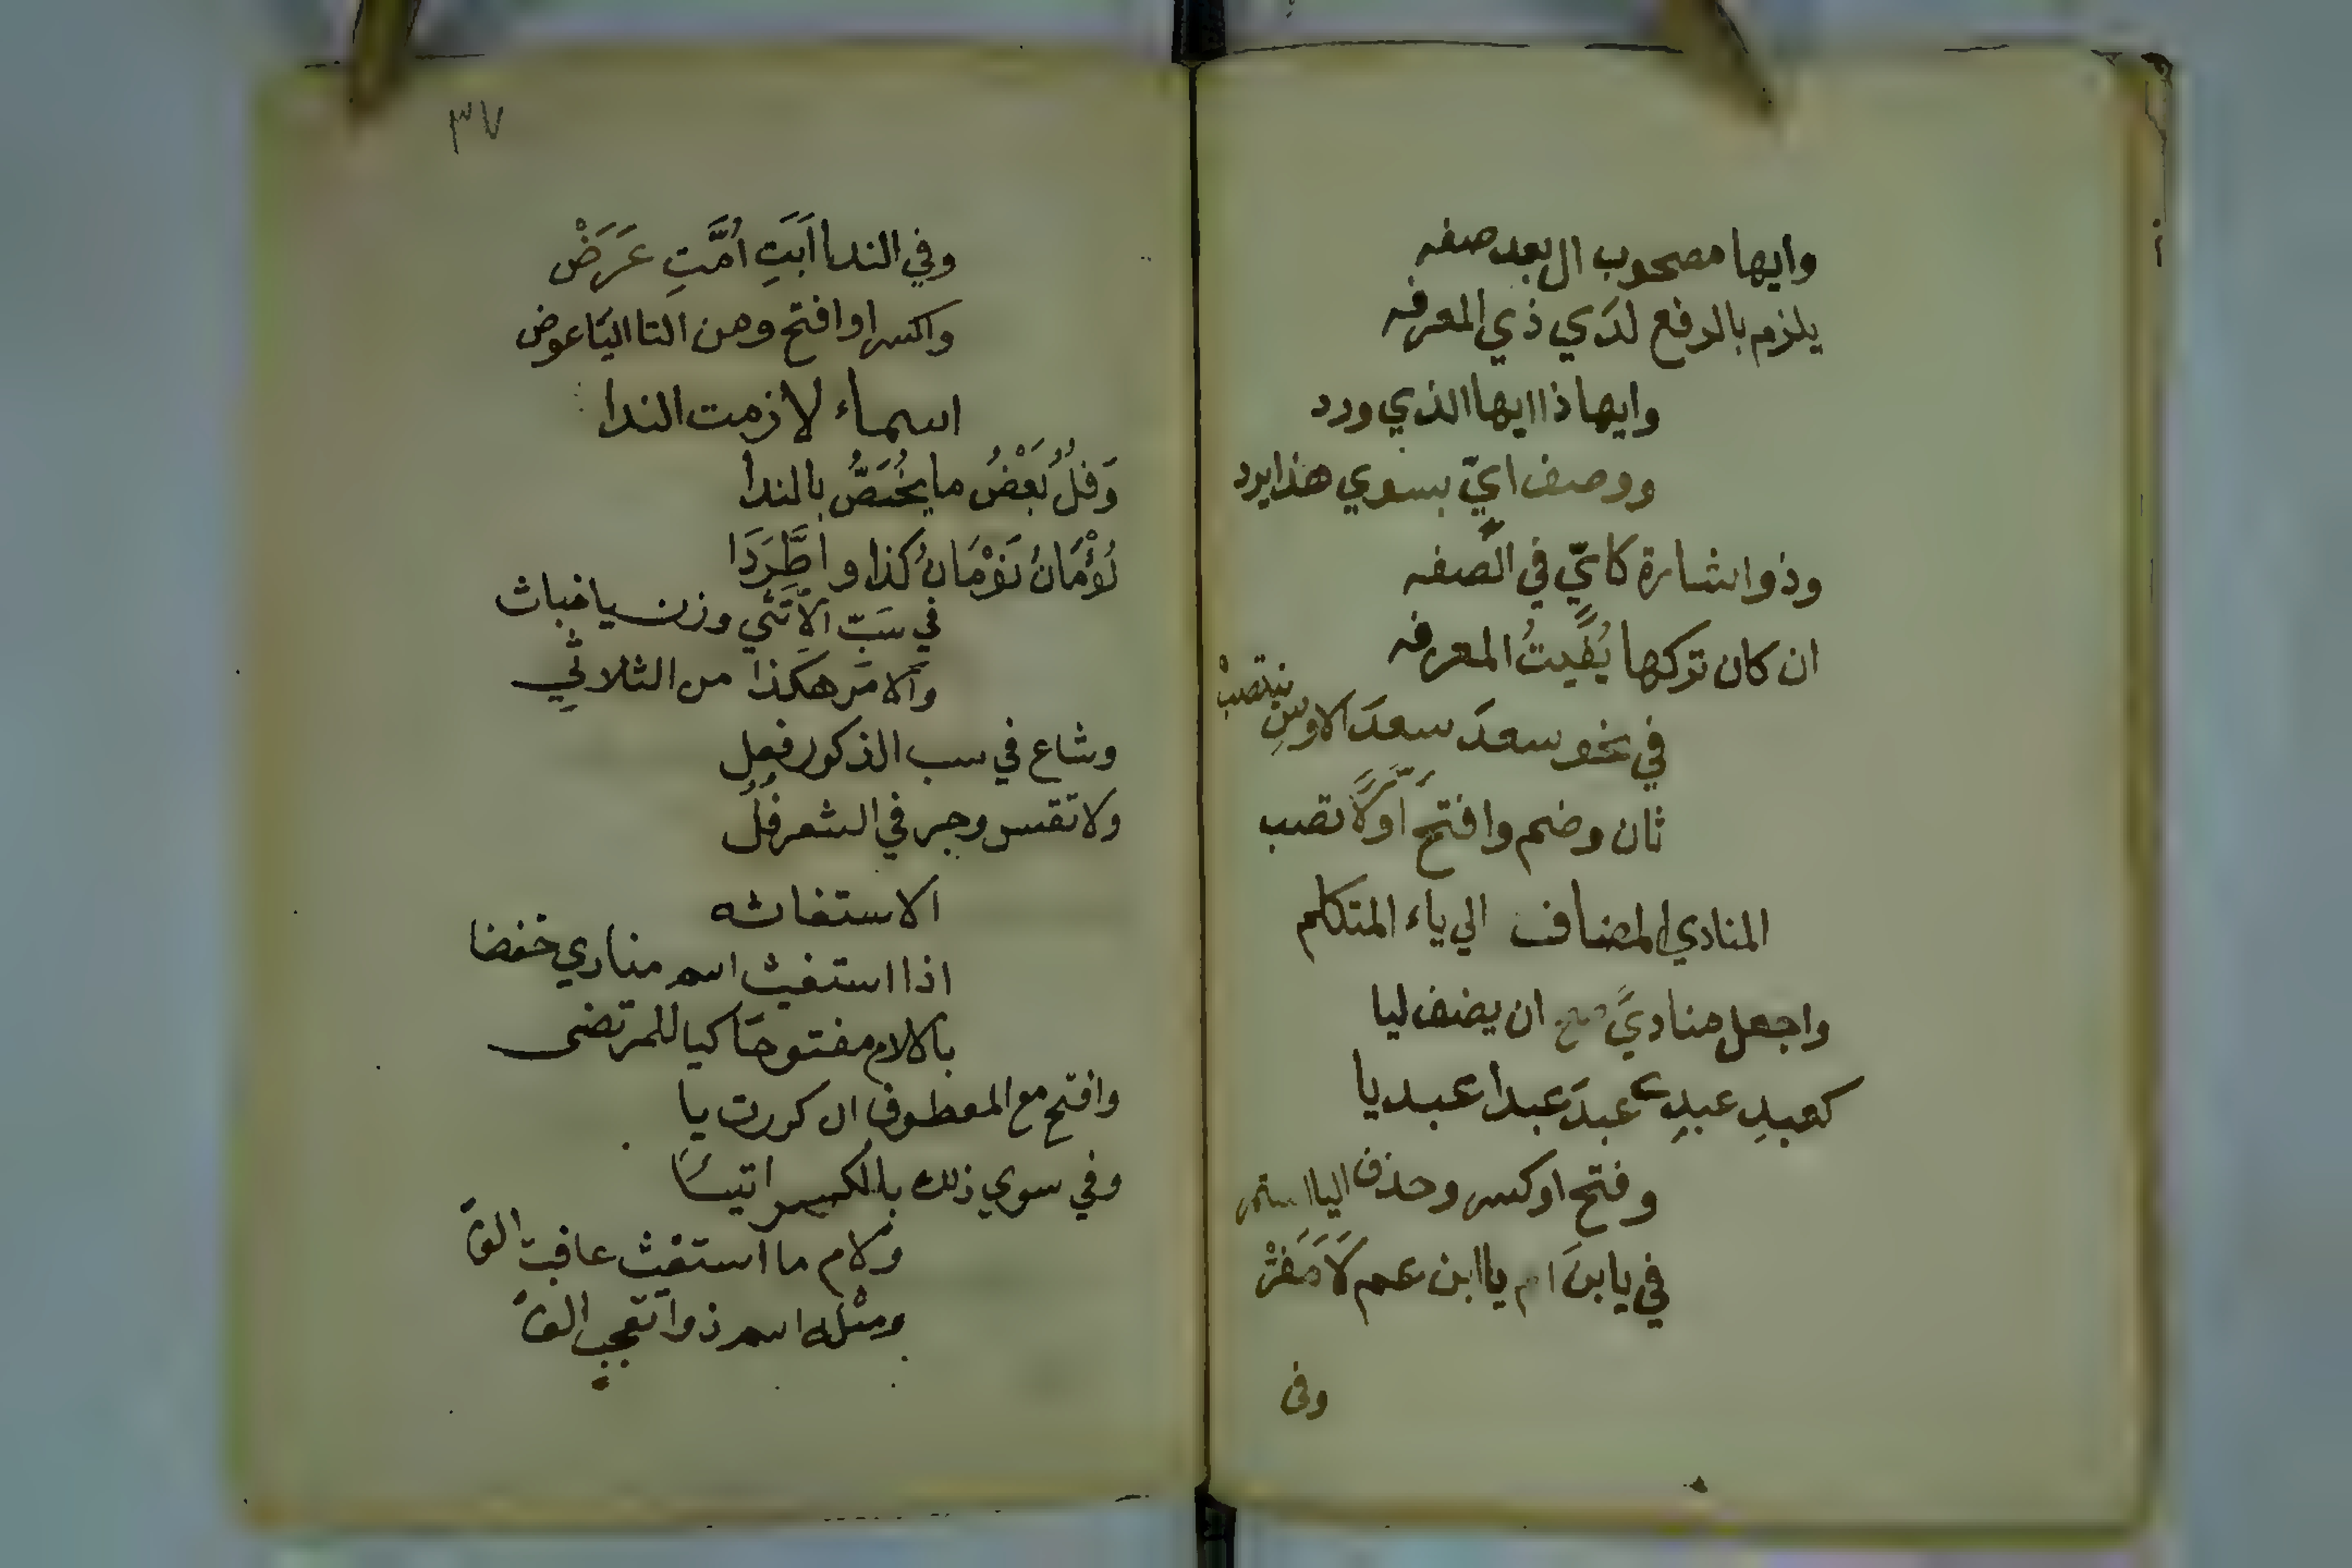 وايها مصحوب ال بعد صفه
يلزم بالرفع لدي ذي المعرفه
وايها ذا ايها الذي ورد
ووصف ايّ بسوي هذا يرد
وذو اشارة كايّ في الصفه
ان كان تركها يُفيتُ المعرفه
في نحو سعدَ سعدَ الاوسِ ينتصبْ
ثان وضم وافتح اوّلا تصب
المنادي المضاف الي ياء المتكلم
واجعل مناديً صح ان يضف ليا
كعبدِ عبدي عبدَ عبدا عبديا
وفتح او كسر وحذف اليا استمر
في يا ابنَ ام يا ابن عم لَا مَفَرْ
وفي
٣٧
وفي الندا اَبَتِ اُمَّتِ عَرَضْ
واكسر او افتح ومن التا اليا عوض
اسماء لازمت الندا
وَفُلُ بَعْضُ ما يُخَصُّ بالندا
لُؤْمَانُ نَوْمَانُ كذا واطَّرَدَا
في سَبّ الاُنثي وزن يا خباث
والامر هكذا من الثلاثي
وشاع في سب الذكور فعل
ولا تقس وجر في الشعر فُلُ
الاستغاثه
اذا استغيث اسم منادي خفضا
بالام مفتوحا كيا للمرتضى
وافتح مع المعطوف ان كررت يا
وفي سوي ذلك بالكسر اتيا
ولام ما استغيث عاقبت الف
ومثله اسم ذو تعجب الف